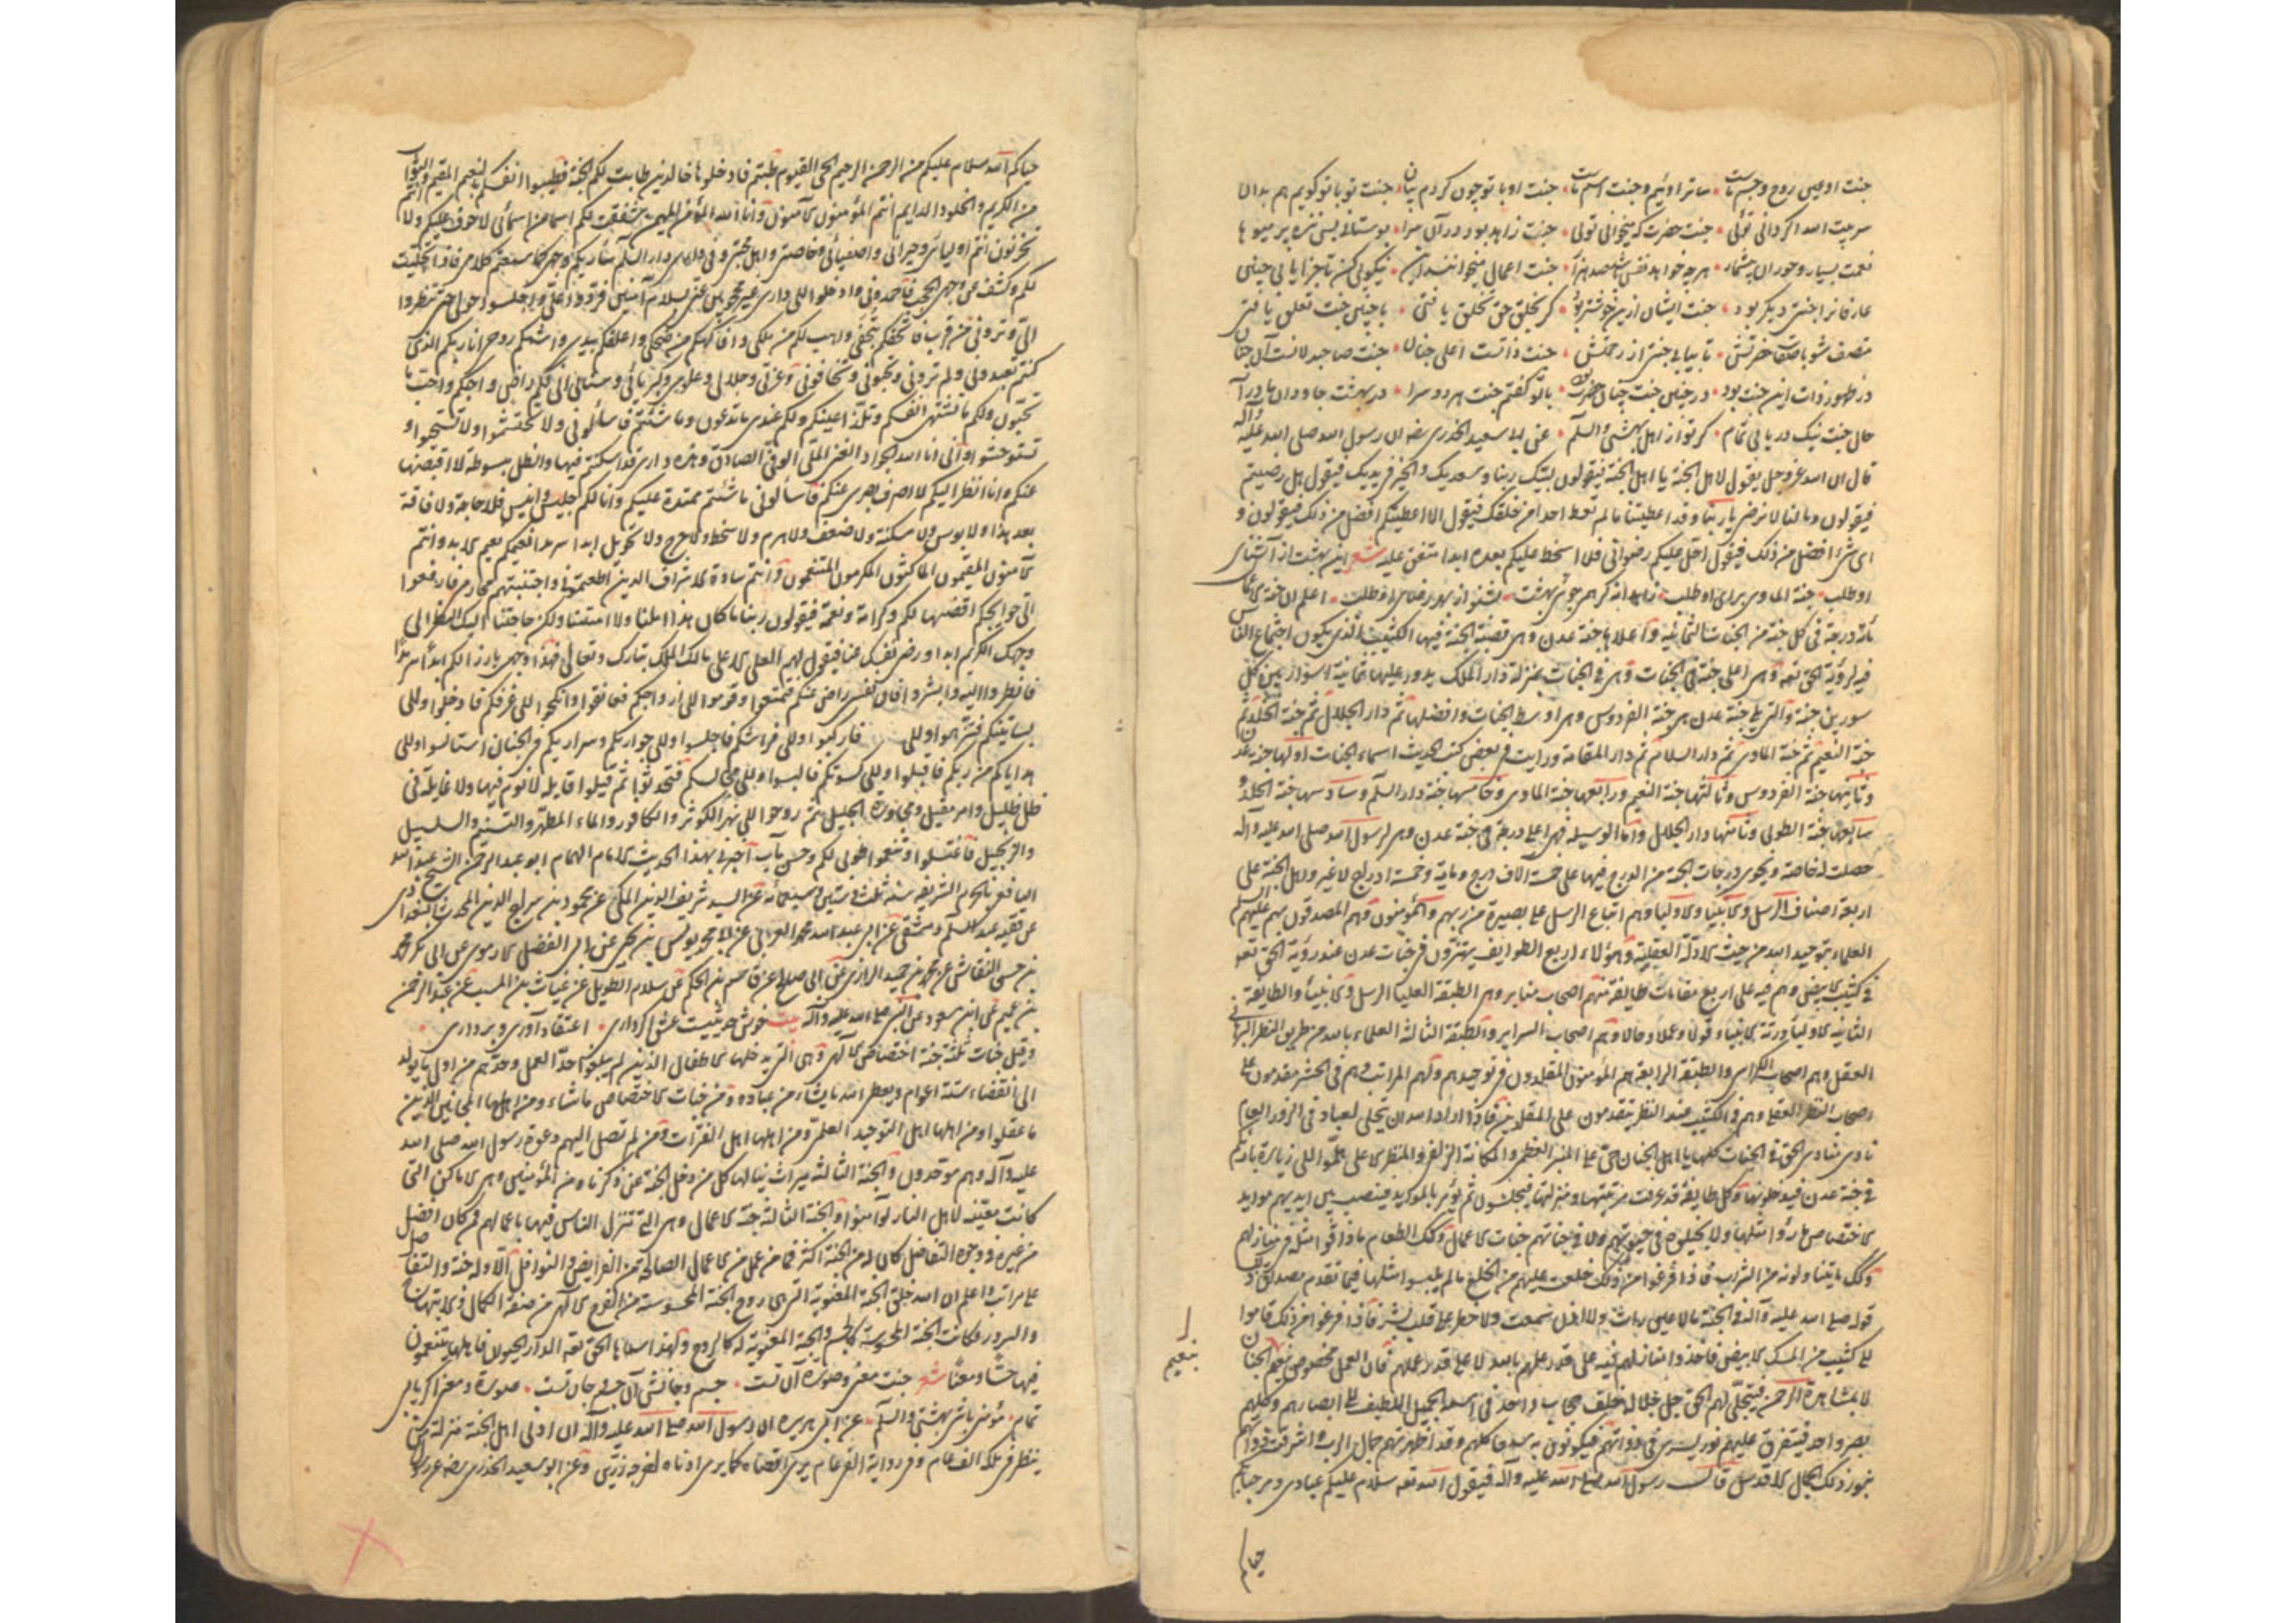 جنت او عین روح و جسم ماست ساتر اوئیم و جنت اسم ماست جنت او با تو چون کردم بیان جنت تو با تو گویم هم بدان
سر بیت الله اگر دانی توئی جنت حضرت که میخوانی توئی جنت زاهد بود در آن سرا بوستانی بس نزه پر میوها
نعمت بسیار و حوران بیشمار هرچه خواهد نفس باشد صد هزار جنت اعمال میخوانندش آن نیکوئی کن تا جزا یابی چنین
عارفانرا جنتی دیگر بود جنت ایشان ازین خوشتر بود گر بخلق حق تخلق یافتی با چنین جنت تعلق یافتی
متصف شو با صفات حضرتش تا بیابی جنتی از رحمتش جنت ذاتست اعلی جنان جنت صاحبدلانست آن جنان
در ظهور ذات این جنت بود در چنین جنت چنان حضرت بود با تو گفتم جنت هر دو سرا در بهشت جاودان ما درآ
حال جنت نیک دریابی تمام گر تو از اهل بهشتی والسلم عن ابی سعید الخدری رض ان رسول الله صلی الله علیه وآله
قال ان الله عز وجل یقول لاهل الجنة یا اهل الجنة فیقولون لبیک ربنا وسعدیک والخیر فی یدیک فیقول هل رضیتم
فیقولون وما لنا لا نرضی یا ربنا وقد اعطیتنا ما لم تعط احدا من خلقک فیقول الا اعطیتکم افضل من ذلک فیقولون و
ای شیء افضل من ذلک فیقول احل علیکم رضوانی فلا اسخط علیکم بعده ابدا متفق علیه شعر این بهشت از آتش
او طلب جنة الماوی برای او طلب اعلم ان جنة الاعمال
مائة درجة فی کل جنة من الجنات الثمانیة واعلاها جنة عدن وهی قصبة الجنة فیها الکثیب الذی یکون اجتماع الناس
فیه لرؤیة الحق تعه وهی اعلی جنة فی الجنات وهی فی الجنات بمنزلة دار الملک یدور علیها ثمانیة اسوار بین کل
سورین جنة والتی یلی جنة عدن هی جنة الفردوس وهی اوسط الجنات وافضلها ثم دار الجلال ثم جنة الخلد ثم
جنة النعیم ثم جنة الماوی ثم دار السلام ثم دار المقامة ورایت فی بعض کتب الحدیث اسماء الجنات اولها جنة عدن
وثانیها جنة الفردوس وثالثها جنة النعیم ورابعها جنة الماوی وخامسها جنة دار السلم وسادسها جنة الخلد و
سابعها جنة الطوبی وثامنها دار الجلال واما الوسیلة فهی اعلی درجة فی جنة عدن وهی لرسول الله صلی الله علیه وآله
حصلت له خاصة ویحوی درجات الجنة من الدرج فیها علی خمسة آلاف درج ومایة وخمسة ادراج لا غیر واهل الجنة علی
اربعة اصناف الرسل والانبیا والاولیا وهم اتباع الرسل علی بصیرة من ربهم والمؤمنون وهم المصدقون بهم علیهم السلم
العلماء بتوحید الله من حیث الادلة العقلیة وهؤلاء اربع الطوایف یتمیزون فی جنات عدن عند رؤیة الحق تعه
فی کثیب الابیض وهم فیه علی اربع مقامات طایفة منهم اصحاب منابر وهی الطبقة العلیا الرسل والانبیا والطایفة
الثانیة الاولیا ورثة الانبیاء قولا وعملا وحالا وهم اصحاب السرایر والطبقة الثالثة العلماء بالله من طریق النظر البرهانی
العقلی وهم اصحاب الکراسی والطبقة الرابعة هم المؤمنون المقلدون فی توحیدهم ولهم المراتب وهم فی الحشر مقدمون علی
اصحاب النظر العقلی وهم فی الکثیب عند النظر یتقدمون علی المقلدین فاذا اراد الله ان یتجلی لعباده فی الزور العام
نادی منادی الحق فی الجنات کلها یا اهل الجنان حی علی المنة العظمی والمکانة الزلفی والمنظر الاعلی هلموا الی زیارة ربکم
فی جنة عدن فیدخلونها وکل طایفة قد عرفت مرتبتها ومنزلتها فیجلسون ثم یؤتی بالموائد فینصب بین ایدیهم موائد
الاختصاص ما رأوا مثلها ولا تخیلوه فی حیوتهم ولا فی جناتهم جنات الاعمال وکذلک الطعام ما ذاقوا مثله فی منازلهم
وکذلک ما یتناولونه من الشراب فاذا فرغوا من ذلک خلعت علیهم من الخلع ما لم یلبسوا مثلها فیما تقدم مصداق ذلک
قوله صلی الله علیه وآله فی الجنة ما لا عین رات ولا اذن سمعت ولا خطر علی قلب بشر فاذا فرغوا من ذلک قاموا
الی کثیب من المسک الابیض فاخذوا منازلهم فیه علی قدر علمهم بالله لا علی قدر عملهم فان العمل مخصوص بنعیم الجنان
لا بمشاهدة الرحمن فیتجلی لهم الحق جل جلاله خلف حجاب واحد فی اسمه الجمیل اللطیف الی ابصارهم وکلهم
بصر واحد فیتفرق علیهم نور یسری فی ذواتهم فیکونون به سمعا کلهم وقد اظهرتهم جمال الرب واشرقت ذواتهم
بنور ذلک الجمال الاقدس قال رسول الله صلی الله علیه وآله فیقول الله تعه سلام علیکم عبادی ومرحبا بکم
حیاکم
حیاکم الله سلام علیکم من الرحمن الرحیم الحی القیوم طبتم فادخلوها خالدین طابت لکم الجنة فطیبوا انفسکم بالنعیم المقیم والثواب
من الکریم والخلود الدایم انتم المؤمنون الآمنون وانا الله المؤمن المهیمن شققت لکم اسما من اسمائی لا خوف علیکم ولا انتم
تحزنون انتم اولیائی وجیرانی واصفیائی وخاصتی واهل محبتی وفی داری دار السلم
لکم وکشفت عن وجهی الحجب فاحمدونی وادخلوا الی داری غیر محجوبین عنی بسلام آمنین فردوا علی واجلسوا حولی حتی تنظروا
الی وترونی من قرب فاتحفکم بتحفی واهب لکم من ملکی وافاکهکم من ضحکی واغلفکم بیدی واشمکم روحی انا ربکم الذی
کنتم تعبدونی ولم ترونی وتحبونی وتخافونی وعزتی وجلالی وعلوی وکبریائی وسنائی انی عنکم راض واحبکم واحب ما
تحبون ولکم ما تشتهی انفسکم وتلذ اعینکم ولکم عندی ما تدعون وما شئتم فاسألونی ولا تحتشموا ولا تستحیوا و
تستوحشوا وانی انا الله الجواد الغنی الملی الوفی الصادق وهذه داری قد اسکنتم فیها والظل مبسوطة لا اقبضها
عنکم وانا انظر الیکم لا اصرف بصری عنکم فاسألونی ما شئتم ممتدة علیکم وانا لکم جلیس وانیس فلا حاجة ولا فاقة
بعد هذا ولا بوس ولا مسکنة ولا ضعف ولا هرم ولا سخط ولا حرج ولا تحویل ابدا سرمدا نعیمکم نعیم الابد وانتم
الآمنون المقیمون الماکثون المکرمون المتنعمون وانتم سادة الاشراف الذین اطعتمونی واجتنبتم محارمی فارفعوا
الی حوایجکم اقضیها لکم وکرامة ونعمة فیقولون ربنا ما کان هذا املنا ولا امنیتنا ولکن حاجتنا الیک النظر الی
وجهک الکریم ابدا ورضی نفسک عنا فیقول لهم العلی الاعلی مالک الملک تبارک وتعالی فهذا وجهی بارز لکم ابدا سرمدا
فانظروا الیه وابشروا فان نفسی راض عنکم فتمتعوا وقوموا الی ازواجکم فعانقوا وانکحوا والی غرفکم فادخلوا والی
بساتینکم فتنزهوا والی فارکبوا والی فرشکم فاجلسوا والی جواریکم وسراریکم فی الجنان استانسوا والی
هدایاکم من ربکم فاقبلوا والی کسوتکم فالبسوا والی مجالسکم فتحدثوا ثم قیلوا قایلة لا نوم فیها ولا غایلة فی
ظل ظلیل وامن مقیل ومجاورة الجلیل ثم روحوا الی نهر الکوثر والکافور والماء المطهر والتسنیم والسلسبیل
والزنجبیل فاغتسلوا وتنعموا طوبی لکم وحسن مآب بهذا الحدیث الامام الهمام ابو عبد الرحمن الشیخ عبد الله
الیافعی عن السید شریف الدین المکی عن محمود بن سراج الدین المحدث البغدادی
محمد یونس بن یحیی عن ابی الفضل الارموی عن ابی بکر محمد
بن حسن النقاش عن محمد بن حمید الرازی عن ابی صالح عن قاسم بن الحکم عن سلام الطویل عن غیاث بن المسیب عن عبد الرحمن
بن غنم عن ابن مسعود عن النبی صلی الله علیه وآله بیت خوش حدیثیست عشق اگر داری اعتقاد آوری و برداری
وقیل جنات ثلثة جنة اختصاص الهی وهی التی یدخلها الاطفال الذین لم یبلغوا حد العمل وحدهم من اول ما یولد
الی انقضاء ستة اعوام ویعطی الله ما یشاء من عباده ومن جنات الاختصاص ما شاء ومن اهلها المجانین الذین
ما عقلوا ومن اهلها اهل التوحید العلمی ومن اهلها اهل الفترات ومن لم تصل الیهم دعوة رسول الله صلی الله
علیه وآله وهم موحدون والجنة الثانیة میراث ینالها کل من دخل الجنة عن ذکرناه من المؤمنین وهی الاماکن التی
کانت معینة لاهل النار لو آمنوا والجنة الثالثة جنة الاعمال وهی التی تنزل الناس فیها باعمالهم فمن کان افضل
من غیره فی وجوه التفاضل کان له من الجنة اکثر فما من عمل من الاعمال الصالحة من الفرایض والنوافل الا وله جنة والتفاضل
علی مراتب واعلم ان الله خلق الجنة المعنویة التی هی روح الجنة المحسوسة من الفرح الالهی من صفة الکمال والابتهاج
والسرور فکانت الجنة المحسوسة کالجسم والجنة المعنویة له کالروح ولهذا سماها الحق تعه الدار الحیوان فاهلها یتنعمون
فیها حسا ومعنا شعر جنت معنی و صورت آن تست جسم و جانش آن جسم و جان تست صورت و معنی اگر یابی
تمام مؤمنی باشی بهشتی والسلم عن ابی هریره ان رسول الله صلی الله علیه وآله ان ادنی اهل الجنة منزلة من
ینظر فی ملکه الف عام وفی روایة الفی عام یری اقصاه کما یری ادناه وعن ابو سعید الخدری رضه عن رسول